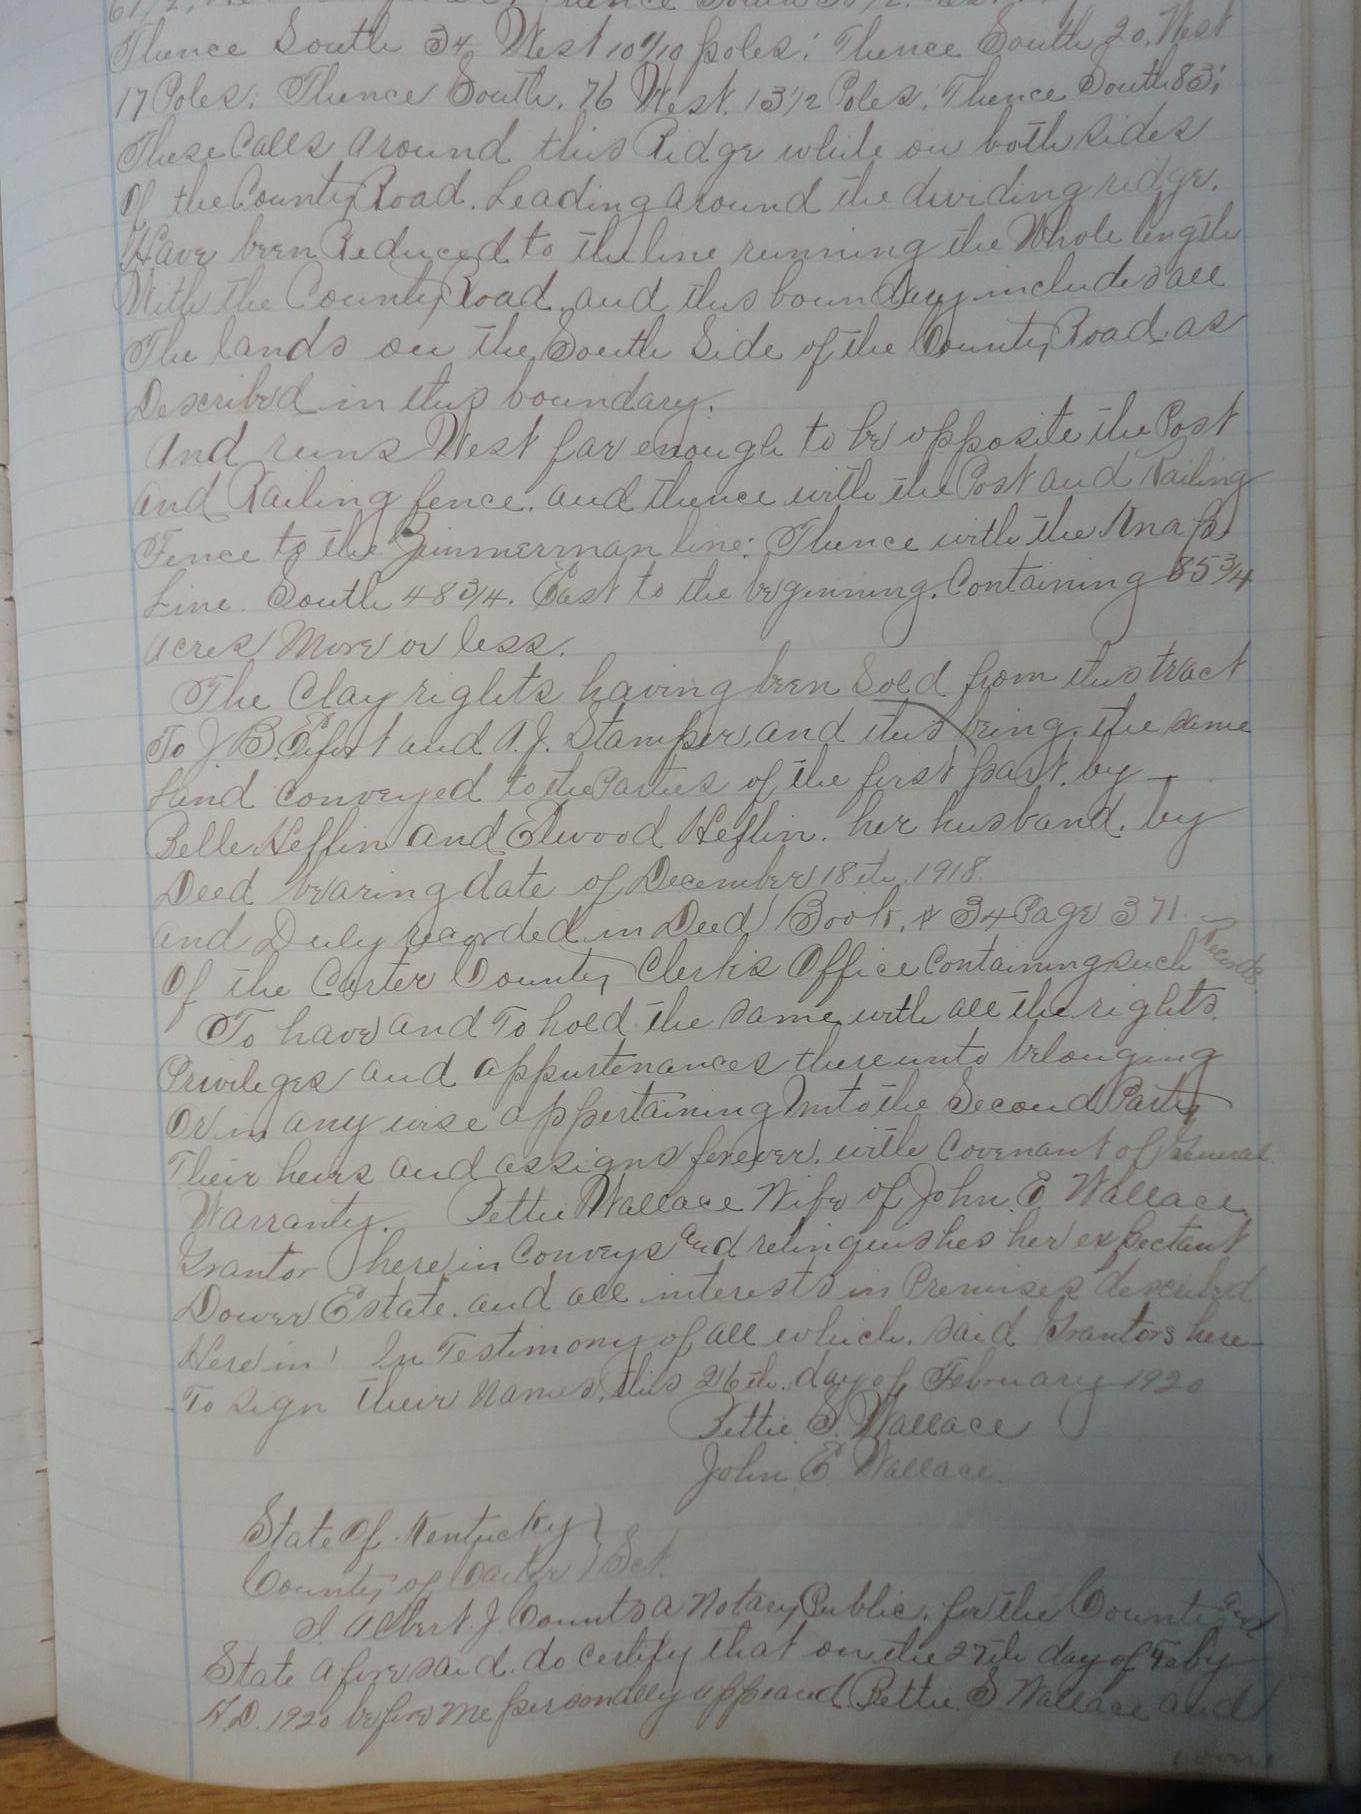 Thence South 34 West 10 4/10 poles; Thence South 20. West
17 Poles; Thence South. 76 West. 13 1/2 Poles; Thence South 83;
These Calls around this Ridge while on both sides
Of the County Road. Leading around the dividing ridge.
Have been Reduced to the line running the Whole length
With the County Road. and this boundary includes all
The lands on the South Side of the County Road as
Described in this boundary.
And runs West far enough to be opposite the Post
and Railing fence. and thence with the Post and Railing
Fence to the Zimmerman line; Thence with the Knap
Line. South 48 3/4. East to the beginning. Containing 85 3/4
acres More or less.
The Clay rights having been Sold from this tract
To J. B. and A. J. Stamper, and this being. the same
Land conveyed to the Parties of the first part. by
Belle Heflin and Elwood Heflin. her husband. by
Deed bearing date of December 18th. 1918.
and Duly recorded in Deed Book. # 34 Page 371.
Of the Carter County Clerk's Office Containing such Records
To have and To hold the same with all the rights.
Privileges and appurtenances thereunto belonging
Or in any wise appertaining Unto the Second Party
Their heirs and assigns forever. with Covenant of General
Warranty. Bettie Wallace Wife of John. E Wallace.
Grantor herein Conveys and relinquishes her expectant
Dower Estate. and all interests in Premises described
Herein! In Testimony of all which. said Grantors here
To sign their Names, this 26th. day of February 1920
Bettie S. Wallace
John E Wallace.
State Of Kentucky
County of Carter Sct.
I. Albert. J. Counts a Notary Public, for the County and
State aforesaid. do certify that on the 27th day of Feby
A.D. 1920 before me personally appeared Bettie S Wallace and